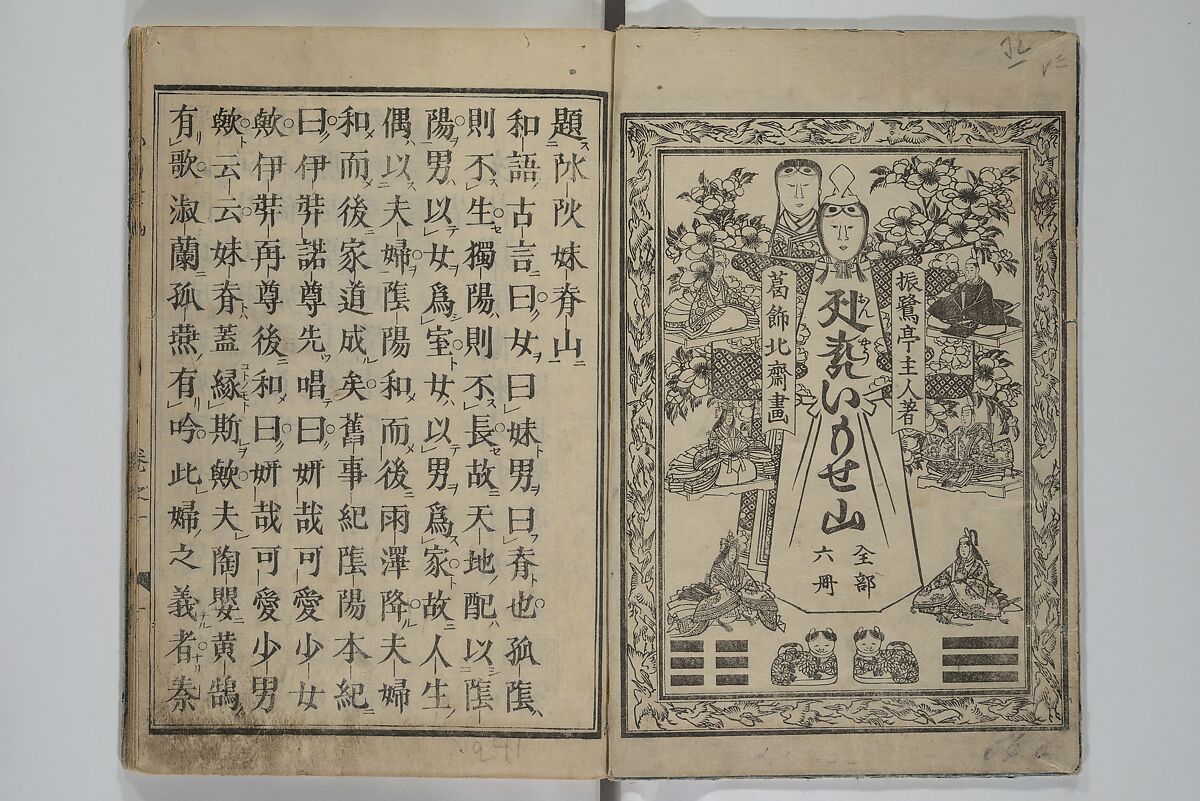 振鷺亭主人著
おんやう
いもせ山
全部
六冊
葛飾北齋畫
題 妹脊山
和語古言曰女曰妹男曰脊也孤隂
則不生獨陽則不長故天地配以隂
陽男以女爲室女以男爲家故人生
偶以夫婦隂陽和而後雨澤降夫婦
和而後家道成矣舊事紀隂陽本紀
曰伊弉諾尊先唱曰妍哉可愛少女
歟伊弉再尊後和曰妍哉可愛少男
歟云云妹脊蓋縁斯歟夫陶嬰黄鵠
有歌淑蘭孤燕有吟此婦之義者秦